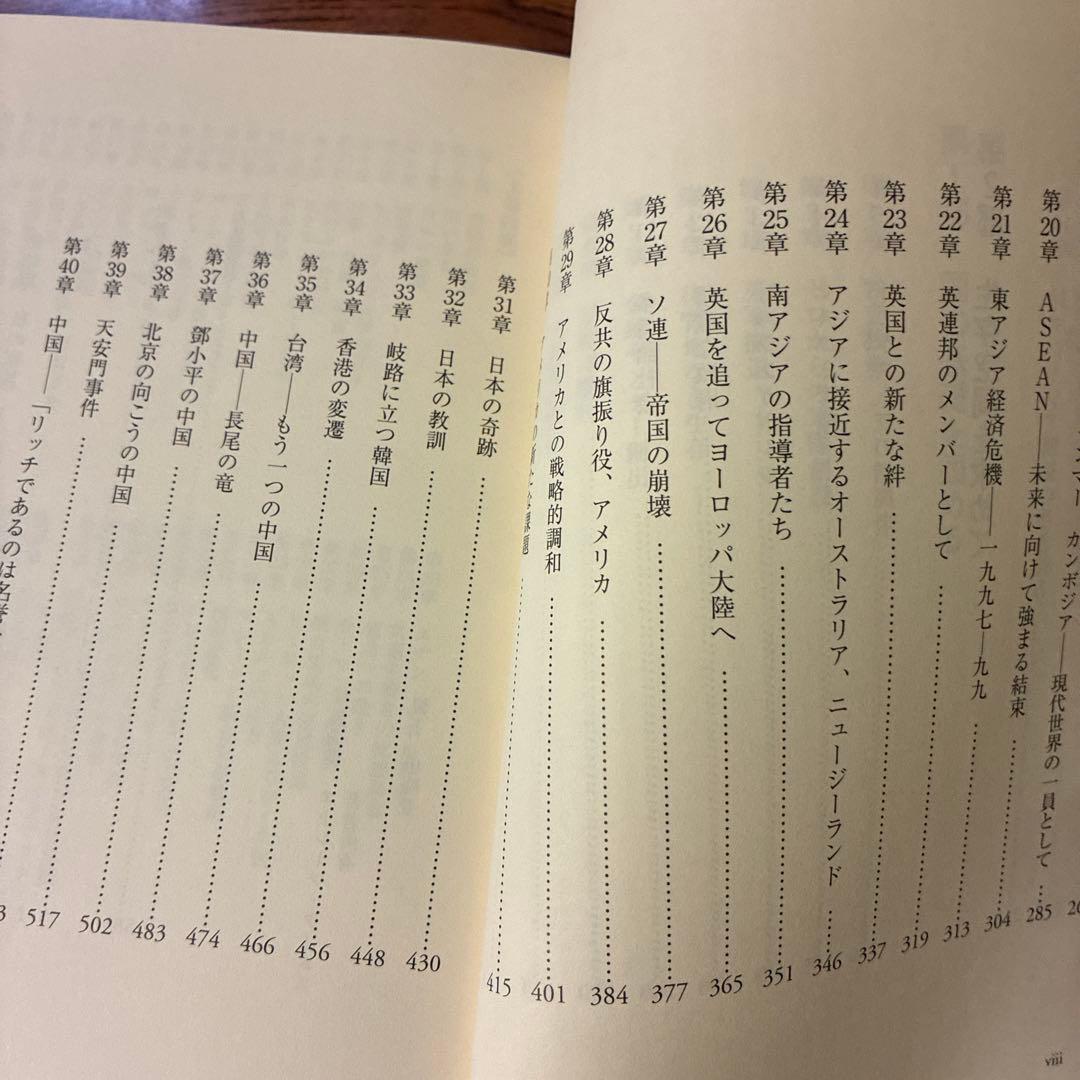 カンボジア——現代世界の一員として 285
第20章 ASEAN——未来に向けて強まる結束 304
第21章 東アジア経済危機——一九九七—九九 313
第22章 英連邦のメンバーとして 319
第23章 英国との新たな絆 337
第24章 アジアに接近するオーストラリア、ニュージーランド 346
第25章 南アジアの指導者たち 351
第26章 英国を追ってヨーロッパ大陸へ 365
第27章 ソ連——帝国の崩壊 377
第28章 反共の旗振り役、アメリカ 384
第29章 アメリカとの戦略的調和 401
課題 415
viii
第31章 日本の奇跡 430
第32章 日本の教訓 448
第33章 岐路に立つ韓国 456
第34章 香港の変遷 466
第35章 台湾——もう一つの中国 474
第36章 中国——長尾の竜 483
第37章 鄧小平の中国 502
第38章 北京の向こうの中国 517
第39章 天安門事件 3
第40章 中国——「リッチであるのは名誉